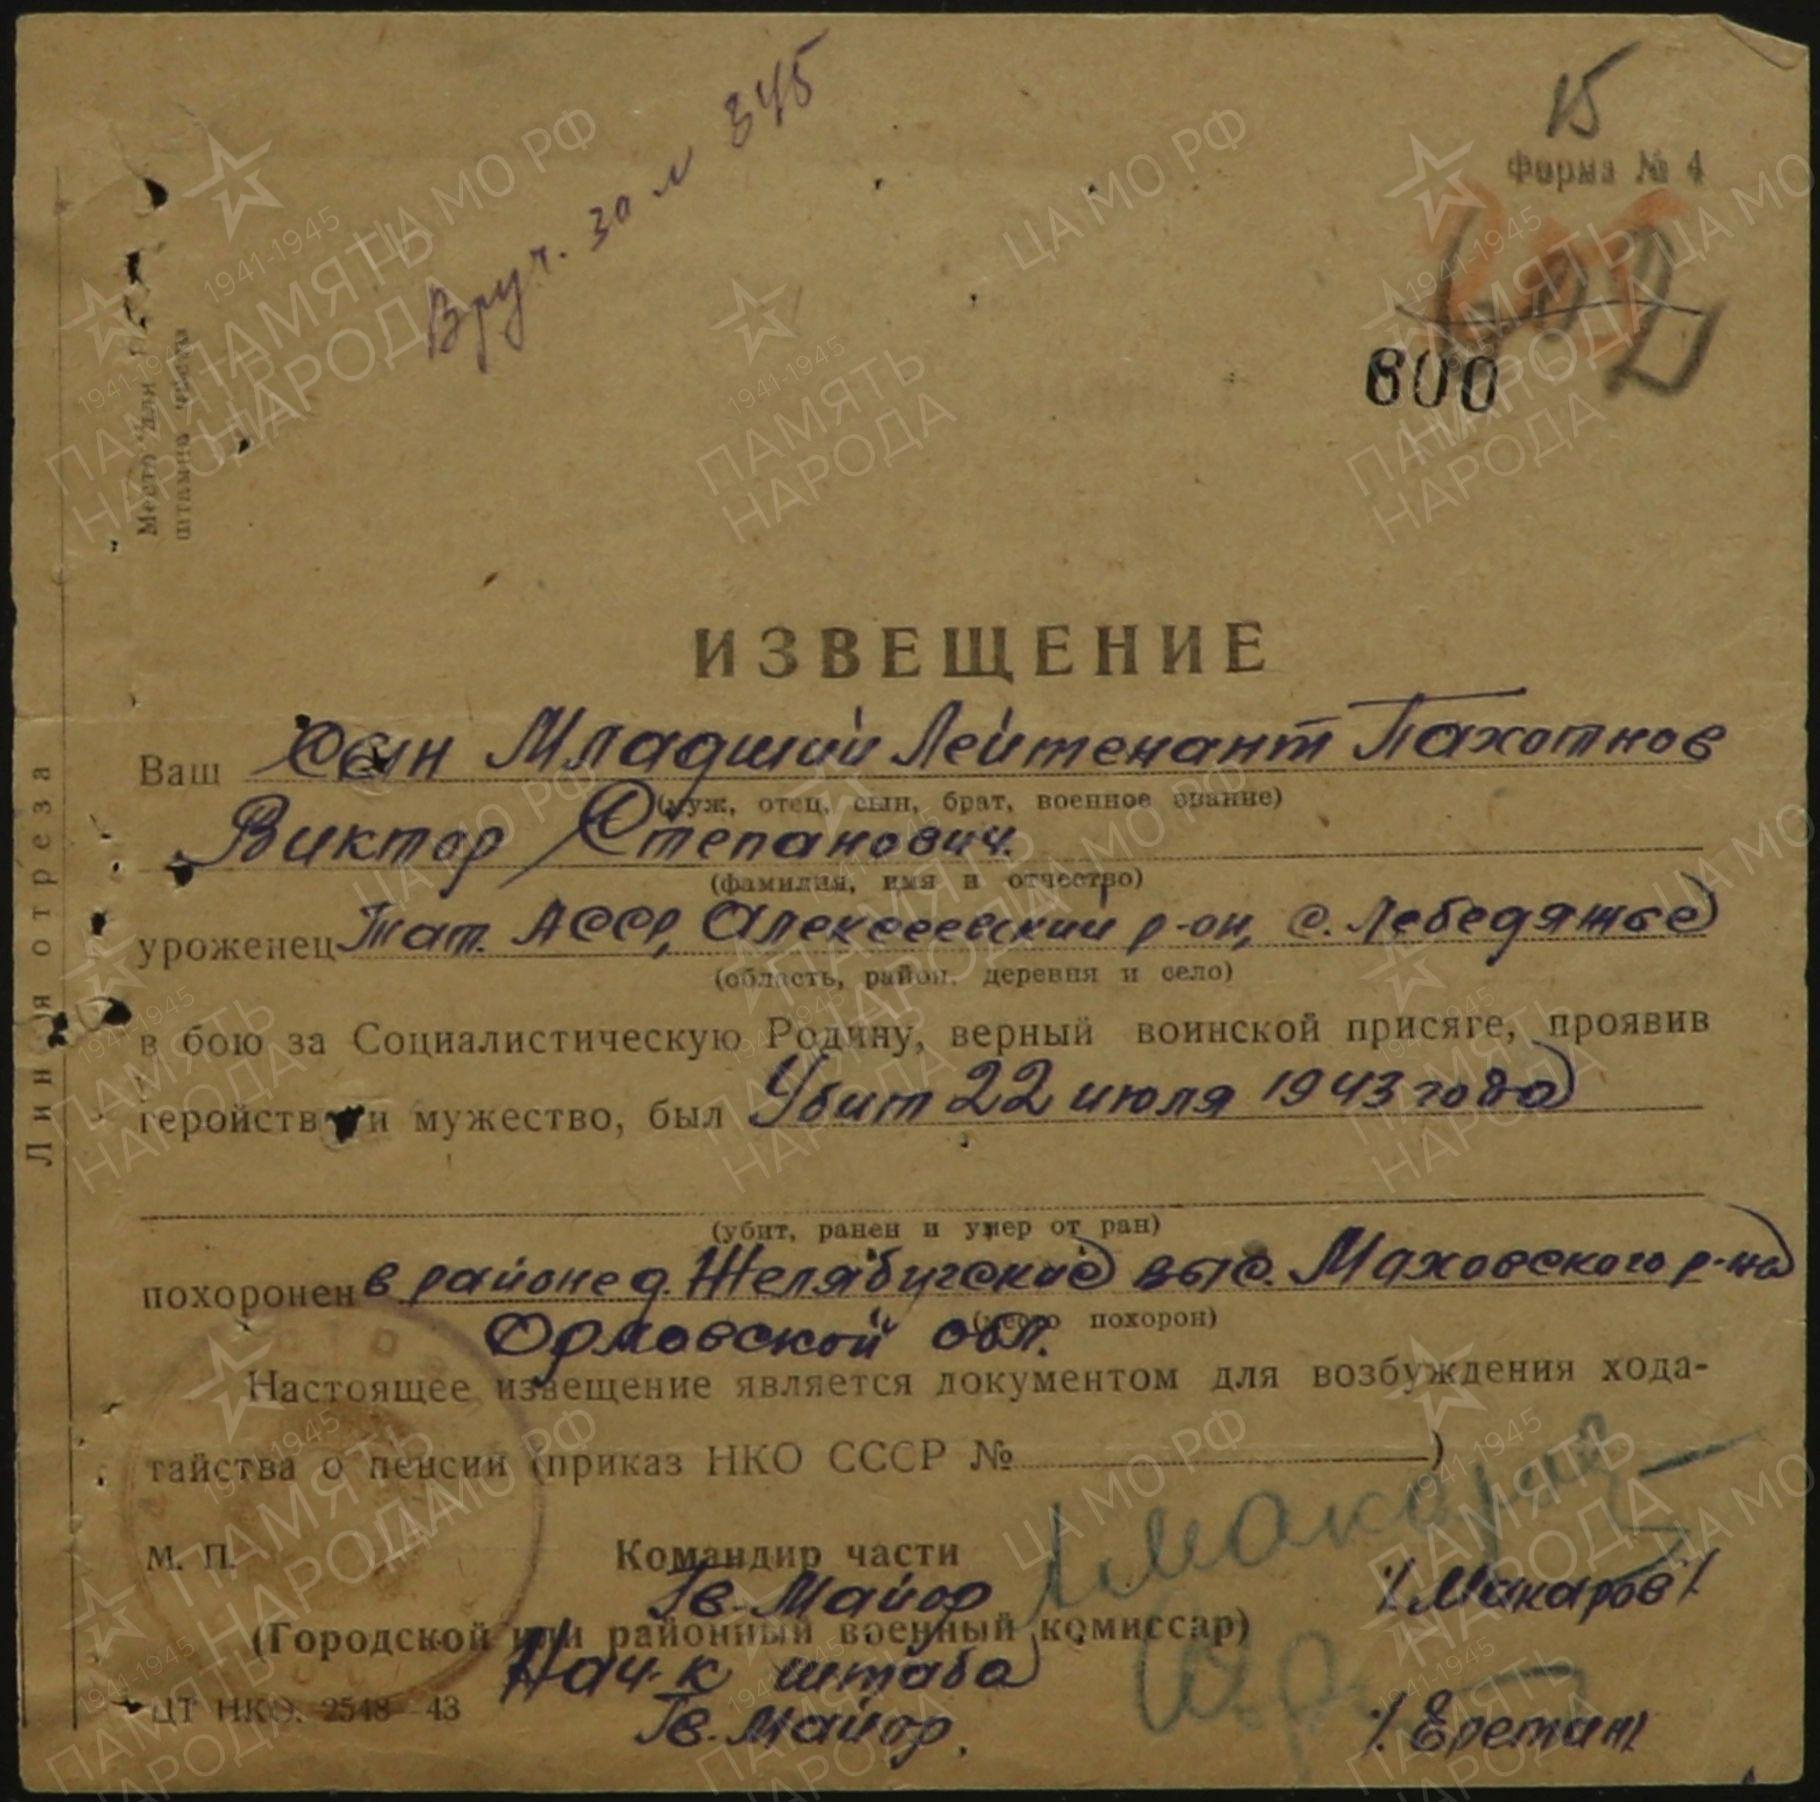 15
Форма № 4
Вруч. за № 345
600
Место для
штампа части
Линия отреза
ИЗВЕЩЕНИЕ
Ваш сын Младший Лейтенант Пахотнов
(муж, отец, сын, брат, военное звание)
Виктор Степанович.
(фамилия, имя и отчество)
уроженец Тат. АССР, Алексеевский р-он, с. Лебедятье
(область, район, деревня и село)
в бою за Социалистическую Родину, верный воинской присяге, проявив
геройство и мужество, был Убит 22 июля 1943 года
(убит, ранен и умер от ран)
похоронен в районе д. Желябугские выс. Маховского р-на
(место похорон)
Орловской обл.
Настоящее извещение является документом для возбуждения хода-
тайства о пенсии (приказ НКО СССР №)
М. П. Командир части
Гв. Майор /Макаров/.
(Городской или районный военный комиссар)
Нач-к штаба
Гв. Майор. /. Еретин
ЦТ НКО. 2548—43
ПАМЯТЬ НАРОДА
1941-1945
ЦА МО РФ